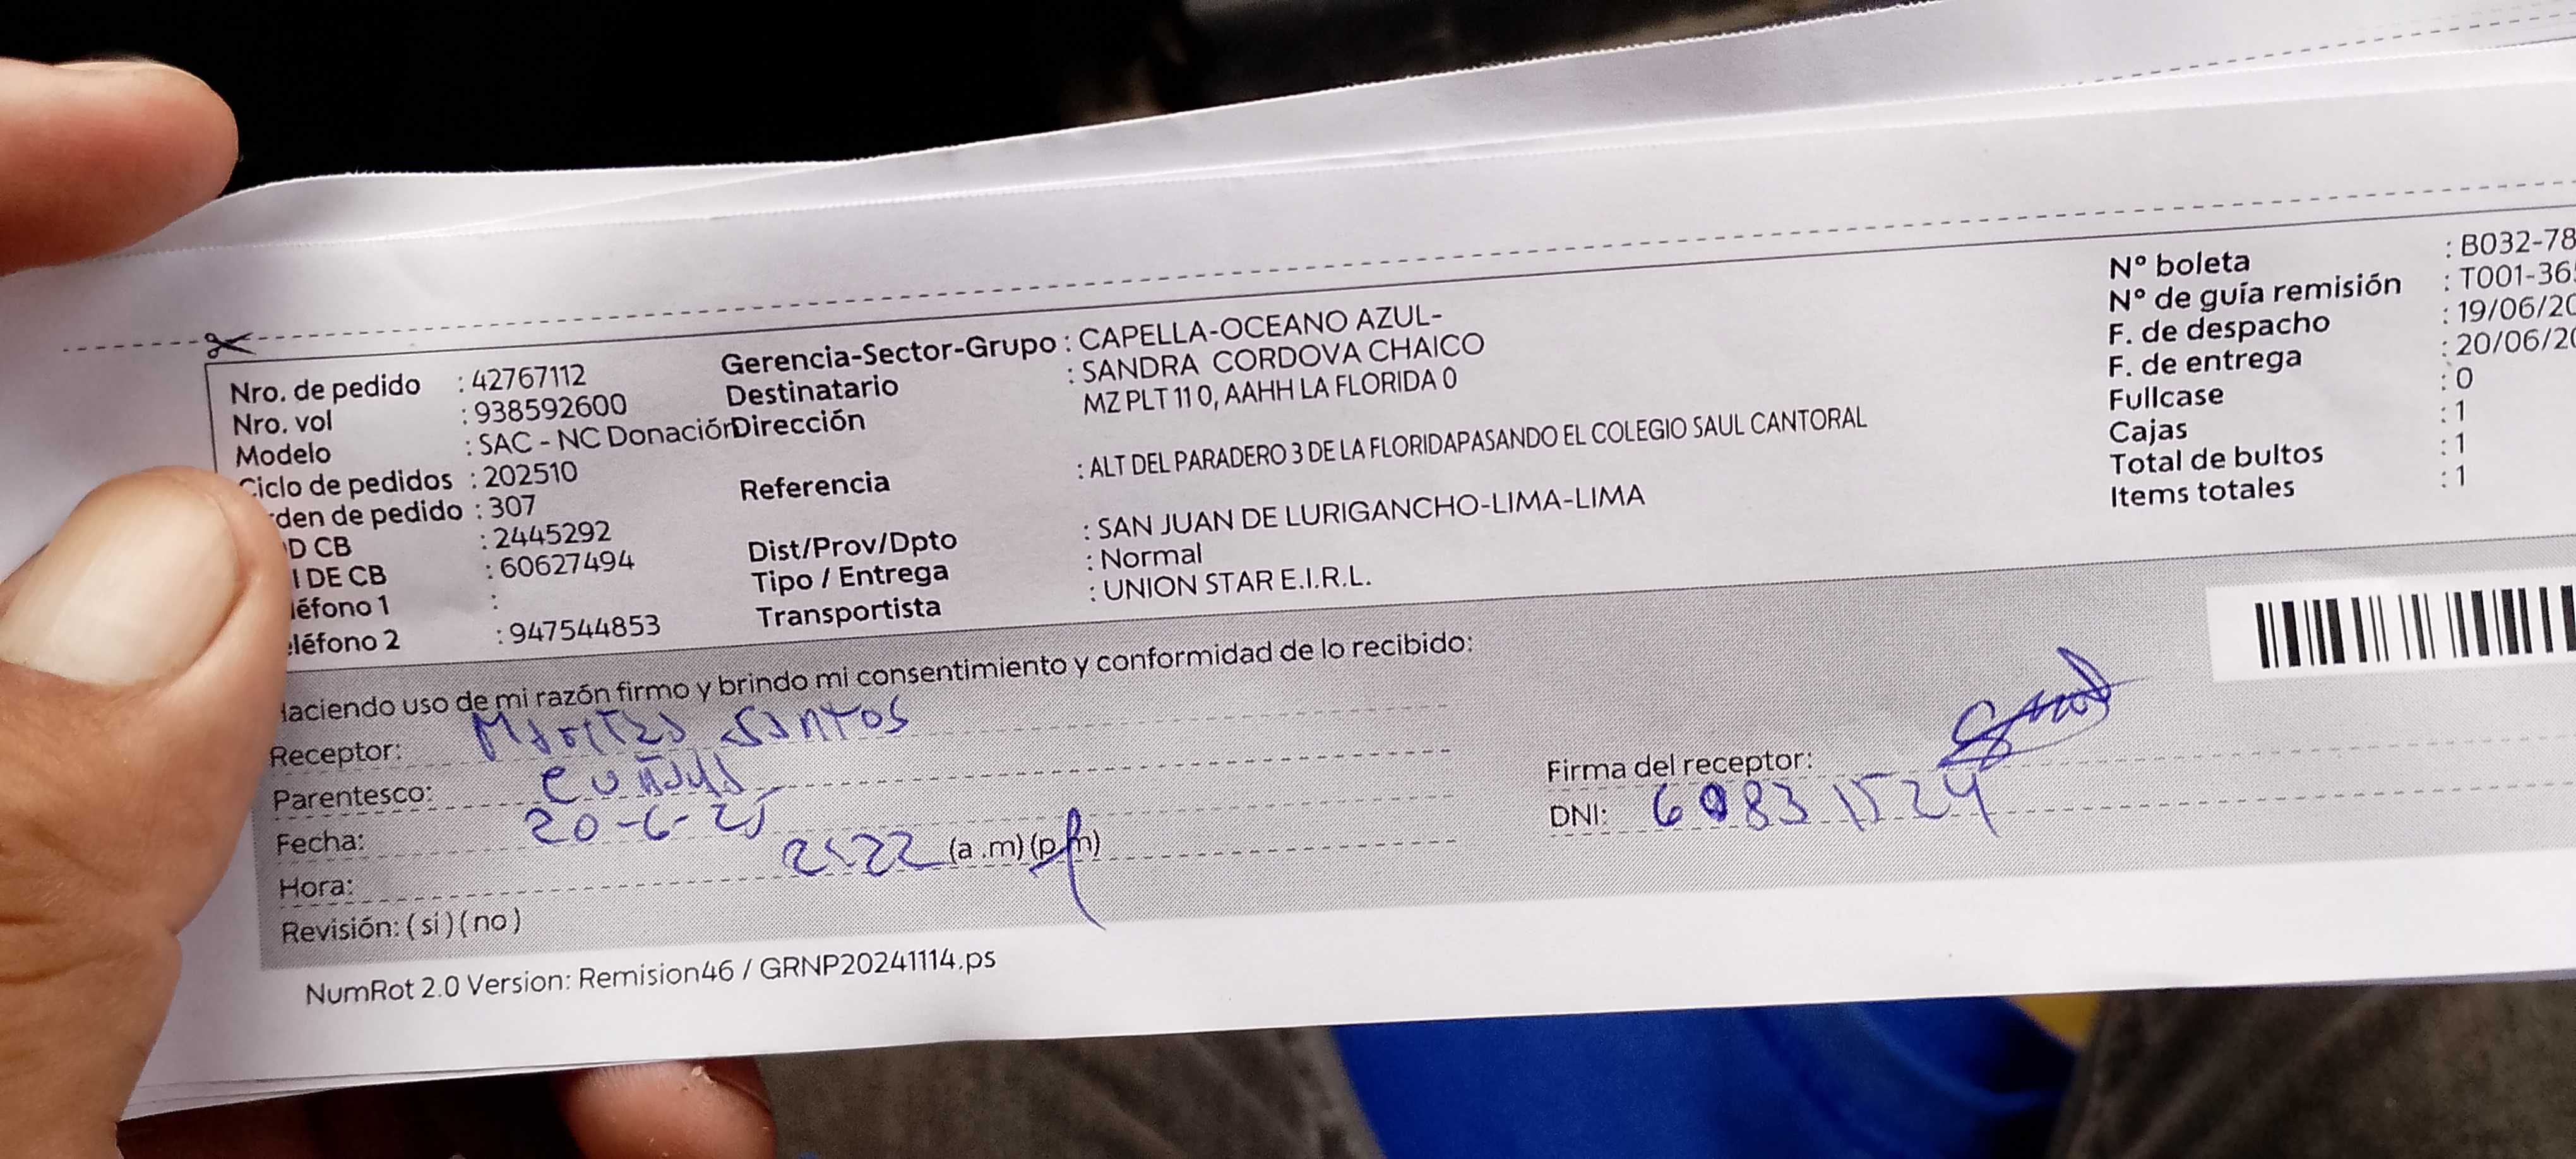 Nro. de pedido : 42767112
Nro. vol : 938592600
Modelo : SAC - NC Donación
Ciclo de pedidos : 202510
rden de pedido : 307
D CB : 2445292
I DE CB : 60627494
léfono 1 :
eléfono 2 : 947544853
Gerencia-Sector-Grupo : CAPELLA-OCEANO AZUL-
Destinatario : SANDRA CORDOVA CHAICO
Dirección MZ PLT 11 0, AAHH LA FLORIDA 0
Referencia : ALT DEL PARADERO 3 DE LA FLORIDAPASANDO EL COLEGIO SAUL CANTORAL
Dist/Prov/Dpto : SAN JUAN DE LURIGANCHO-LIMA-LIMA
Tipo / Entrega : Normal
Transportista : UNION STAR E.I.R.L.
N° boleta : B032-78
N° de guía remisión : T001-36
F. de despacho : 19/06/20
F. de entrega : 20/06/20
Fullcase : 0
Cajas : 1
Total de bultos : 1
Items totales : 1
Haciendo uso de mi razón firmo y brindo mi consentimiento y conformidad de lo recibido:
Receptor: Maritza Santos
Parentesco: Cuñada
Fecha: 20-6-25
Hora: 2:22 (a .m) (p.m)
Revisión: ( si ) ( no )
Firma del receptor:
DNI: 60831524
NumRot 2.0 Version: Remision46 / GRNP20241114.ps